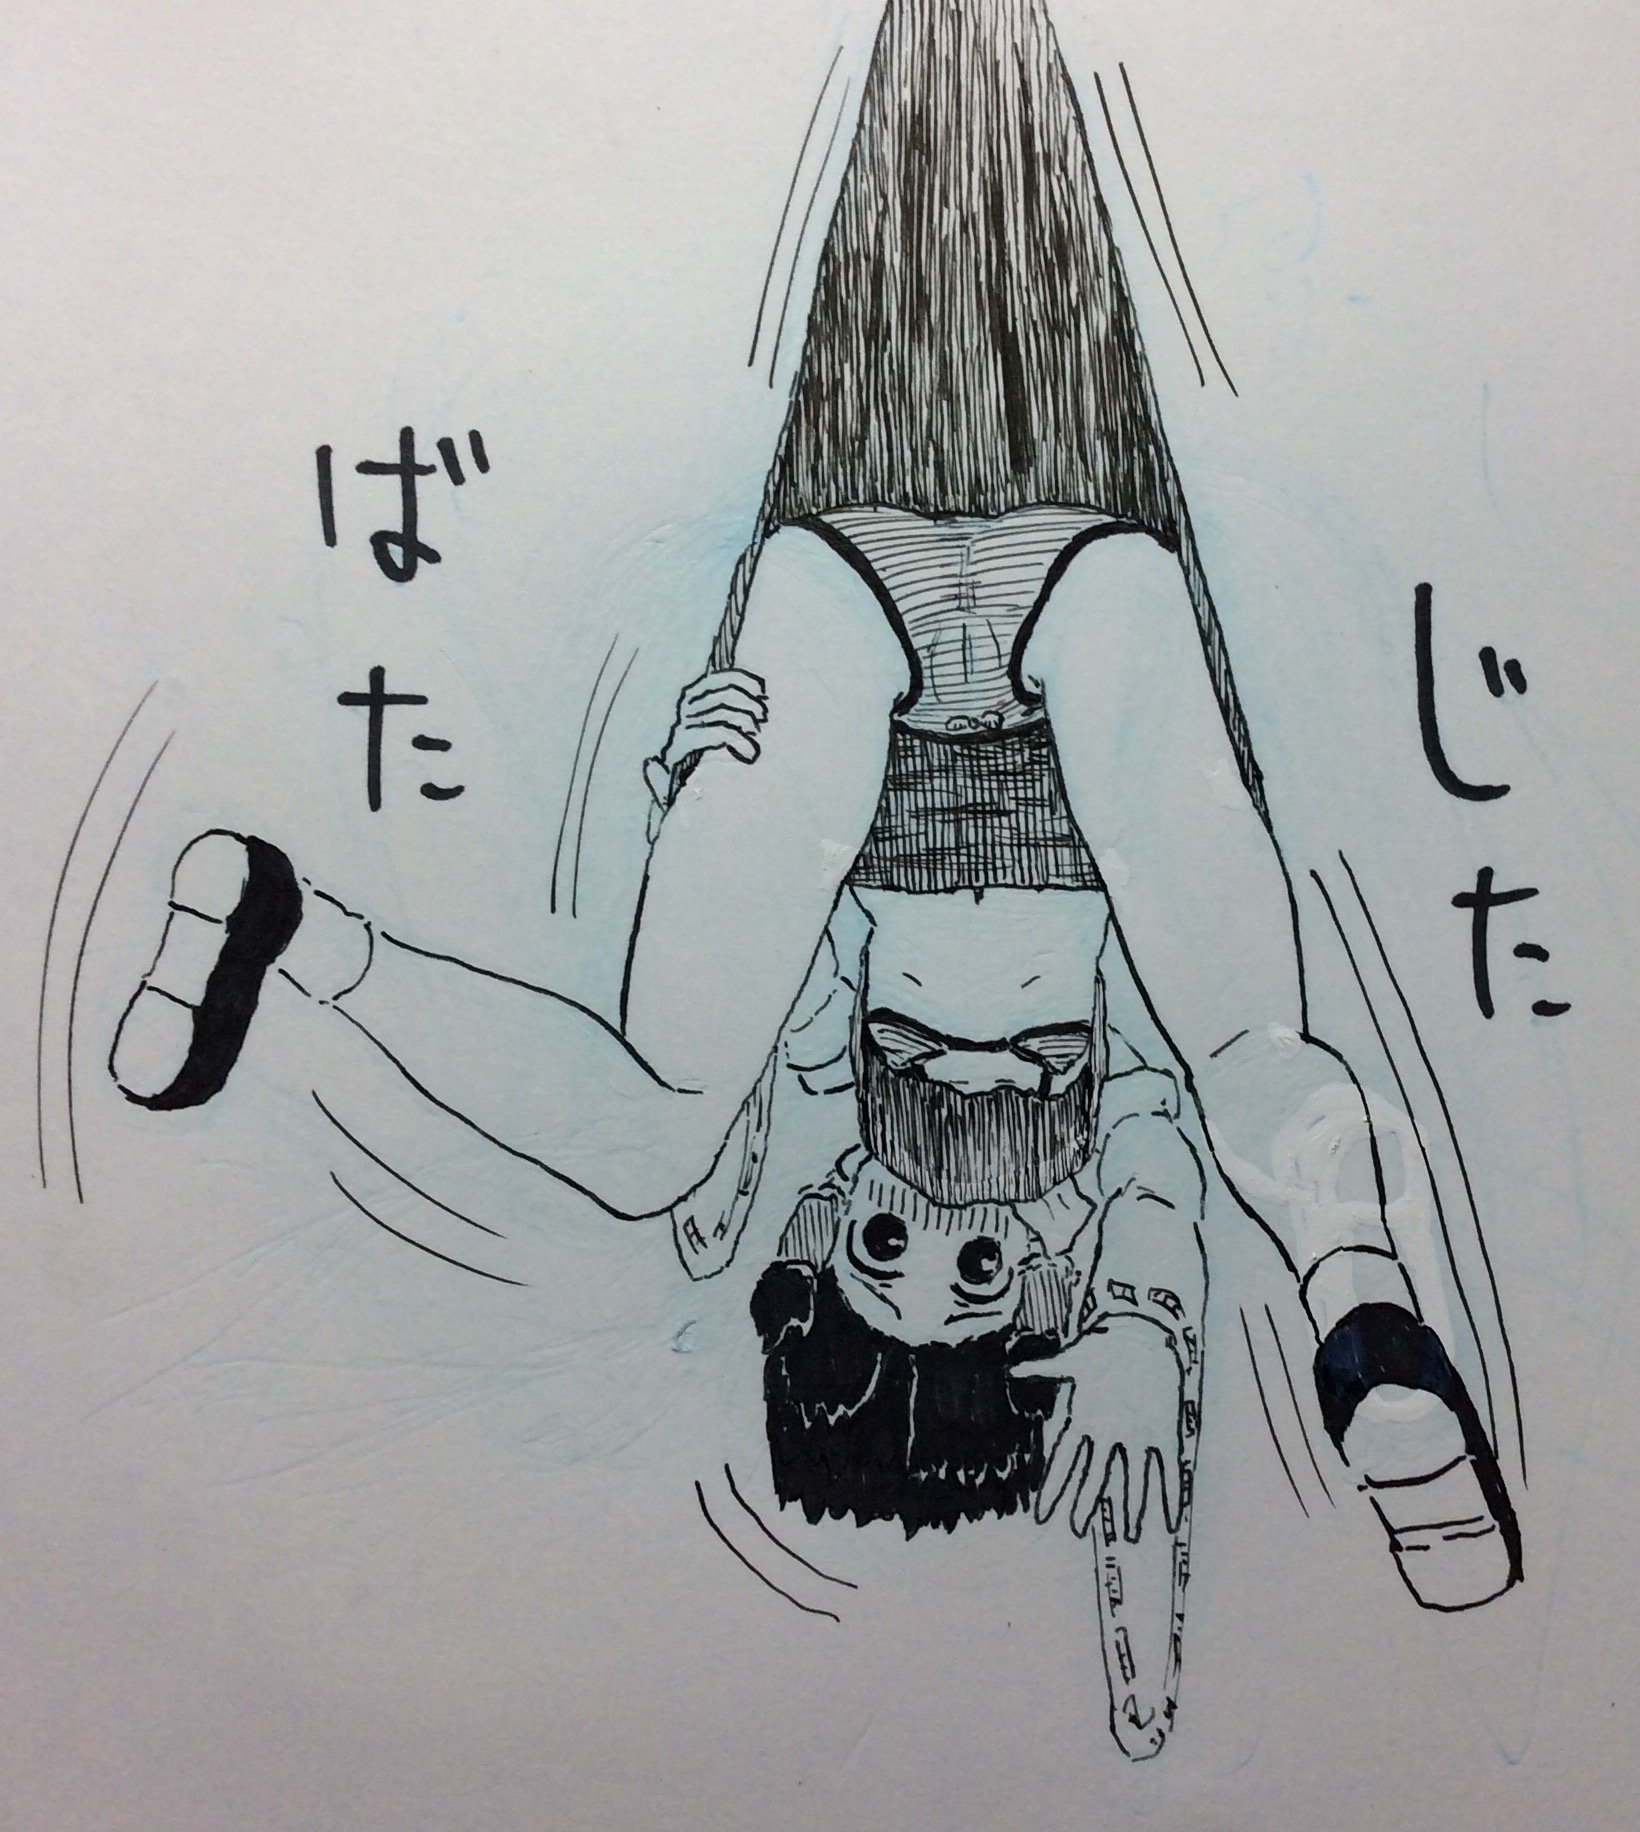 じた
ばた